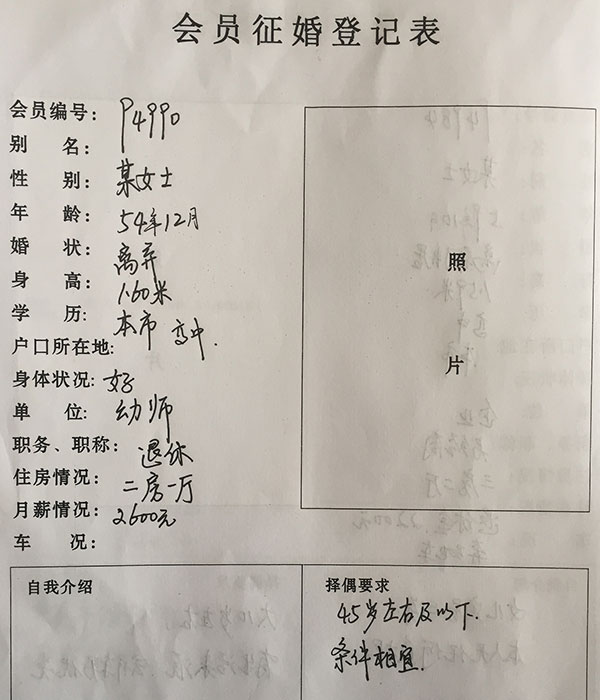 会员征婚登记表
会员编号: P4990
别 名:
性 别: 某女士
年 龄: 54年12月
婚 状: 离异
身 高: 1.60米
学 历: 本市 高中.
户口所在地:
身体状况: 好
单 位: 幼师
职务、职称: 退休
住房情况: 二房一厅
月薪情况: 2600元
车 况:
照
片
自我介绍
择偶要求
45岁左右及以下.
条件相宜.